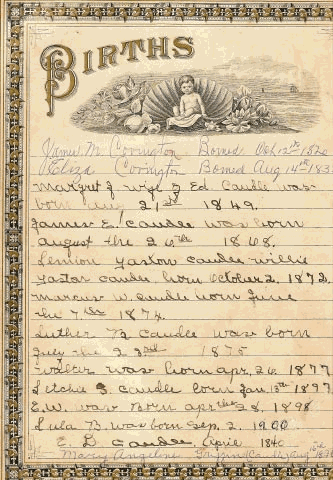 BIRTHS
James M. Covington Borned Oct 12th
Eliza Covington Borned Aug 14th 183
Margret J wife of Ed. Caudle was
born aug 21st 1849.
James E. Caudle was born
august the 26th 1868.
Lennion Gaston caudle willie
Gaston caudle born October 2, 1872.
marcus W. Caudle born June
the 7th 1874.
Luther B Caudle was born
July the 22nd 1875
walter was born apr. 26 1877
Letchie S. Caudle born Jan 13th 1897
E.W. was born apr the 28, 1898
Lula B. was born Sep. 2, 1900
E. D Caudle April 1840
Mary Angeline Griffin Caudle Aug